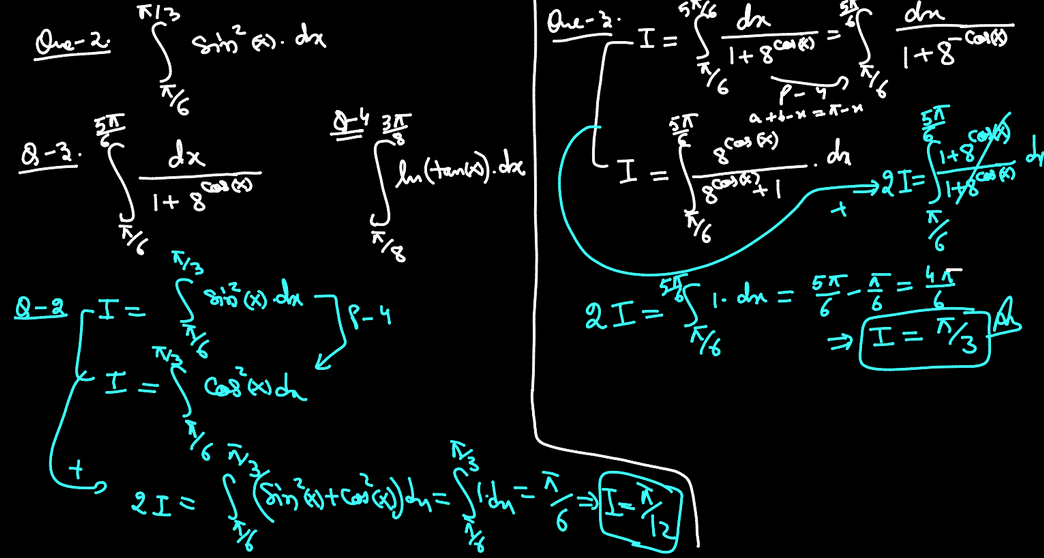 Que-2. ∫_{π/6}^{π/3} sin²(x).dx
Q-3. ∫_{π/6}^{5π/6} dx/(1+8^{cos(x)})
Q-4 ∫_{π/8}^{3π/8} ln(tan(x)).dx
Q-2 I = ∫_{π/6}^{π/3} sin²(x).dx P-4
I = ∫_{π/6}^{π/3} cos²(x)dx
+ 2I = ∫_{π/6}^{π/3} (sin²(x)+cos²(x))dx = ∫_{π/6}^{π/3} 1.dx = π/6 ⇒ I=π/12
Que-3. I = ∫_{π/6}^{5π/6} dx/(1+8^{cos(x)}) = ∫_{π/6}^{5π/6} dx/(1+8^{-cos(x)})
P-4
a+b-x=π-x
I = ∫_{π/6}^{5π/6} 8^{cos(x)}/(8^{cos(x)}+1).dx + ⇒ 2I = ∫_{π/6}^{5π/6} (1+8^{cos(x)})/(1+8^{cos(x)}) dx
2I = ∫_{π/6}^{5π/6} 1.dx = 5π/6 - π/6 = 4π/6
⇒ I = π/3